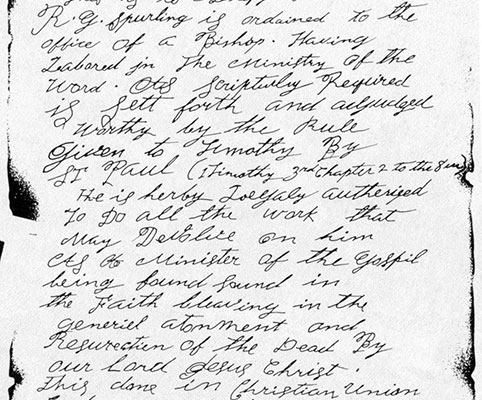 R. G. Spurling is ordained to the
office of a Bishop. Having
Labored in The Ministry Of the
Word. As Scripturly Required
is sett forth and adjudged
Worthy by the Rule
Given to Timothy By
ST Paul (1 Timothy 3rd Chapter 2 to the 8
He is herby Loegaly autherised
To Do all the work that
May Devolve on him
As A Minister of the Gospil
being found Sound in
the Faith bleaving in the
generiel atonment and
Resurection of the Dead By
our Lord Jesus Christ.
This done in Christian Union